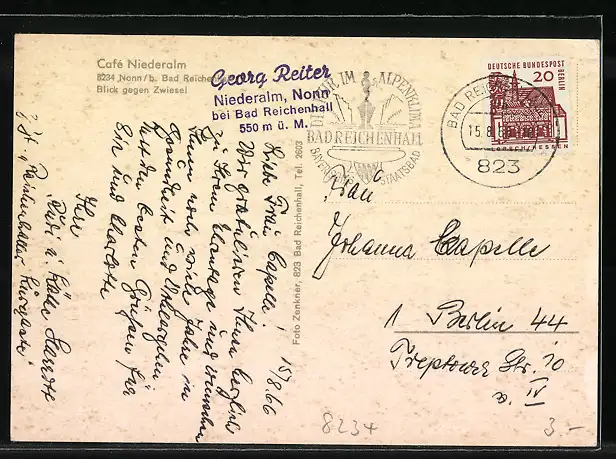 Café Niederalm
8234 Nonn/b. Bad Reichenhall
Blick gegen Zwiesel
Georg Reiter
Niederalm, Nonn
bei Bad Reichenhall
550 m ü. M.
KUR IM ALPENKLIMA
BAD REICHENHALL
BAYERISCHES STAATSBAD
DEUTSCHE BUNDESPOST
BERLIN
20
LORSCH/HESSEN
BAD REICHENHALL
15.8.66
823
Foto Zenkner, 823 Bad Reichenhall, Tel. 2603
15/8 66
Liebe Frau Capelle!
Wir gratulieren Ihnen herzlich
zu Ihrem und wünschen
Ihnen noch viele Jahre in
Gesundheit und
besten Grüßen für
Sie und Charlotte
Ihre
Frau
Johanna Capelle
1 Berlin 44
Treptower Str. 10
v. IV
8234
3.-